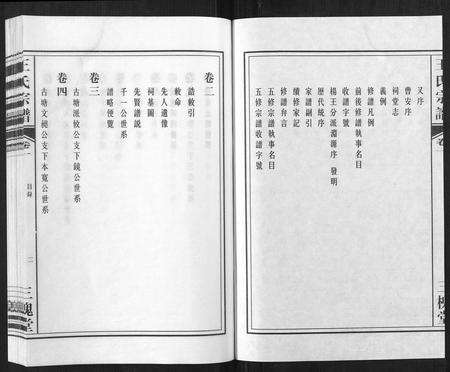 王氏宗譜
卷
三槐堂
又序
曹安序
祠堂志
義例
修譜凡例
前後修譜執事名目
收譜字號
楊王分派淵源序 發明
歷代統序
家譜副引
續修家記
修譜弁言
五修宗譜執事名目
五修宗譜收譜字號
卷二
誥敕引
敕命
先人遺像
祠基圖
先賢譜說
千一公世系
譜略便覽
卷三
古塘派皎公支下鏡公世系
卷四
古塘文樾公支下本寬公世系
王氏宗譜
卷一
目錄
二
三槐堂